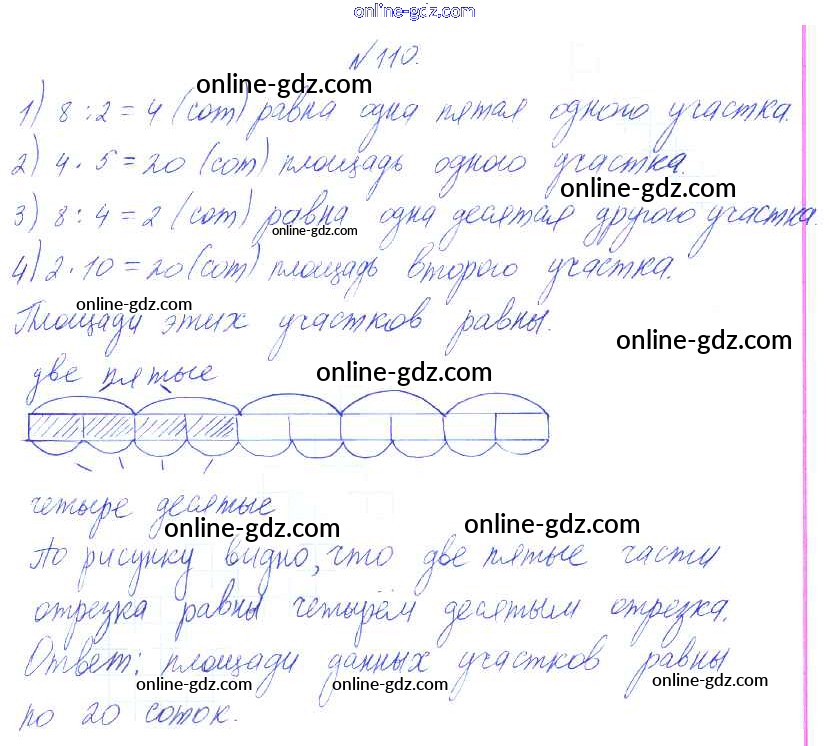 online-gdz.com
№110.
online-gdz.com
1) 8 : 2 = 4 (сот) равна одна пятая одного участка.
2) 4 · 5 = 20 (сот) площадь одного участка.
online-gdz.com
3) 8 : 4 = 2 (сот) равна одна десятая другого участка.
online-gdz.com
4) 2 · 10 = 20 (сот) площадь второго участка.
online-gdz.com
Площади этих участков равны.
online-gdz.com
две пятые
online-gdz.com
четыре десятые
online-gdz.com online-gdz.com
По рисунку видно, что две пятые части
отрезка равны четырём десятым отрезка.
Ответ: площади данных участков равны
online-gdz.com online-gdz.com online-gdz.com
по 20 соток.